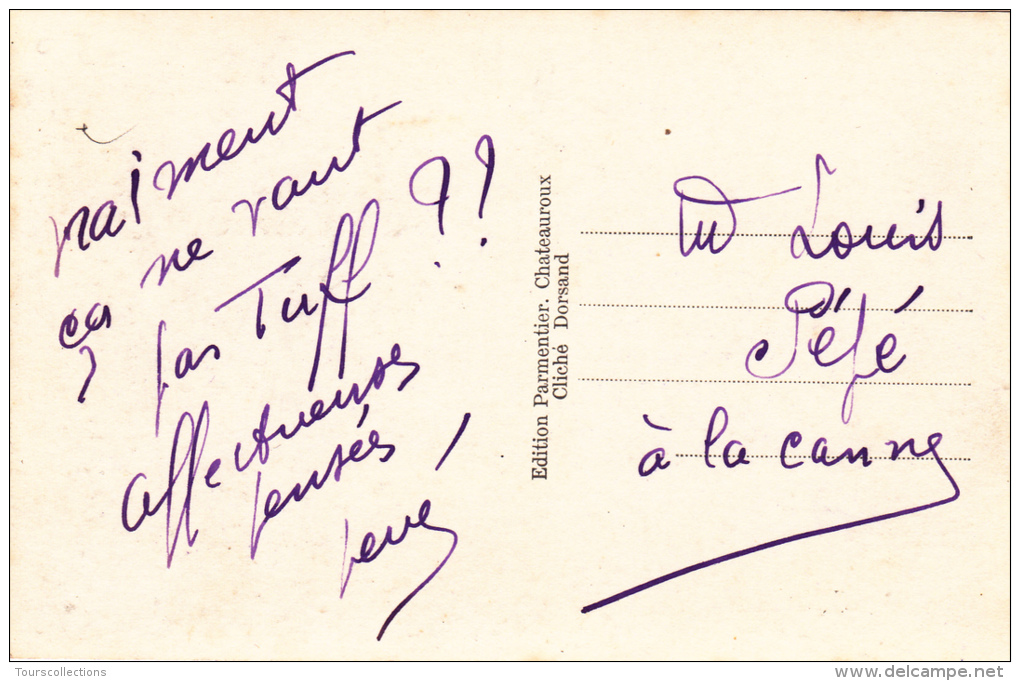 vraiment
ça ne vaut
pas Tuff ??
affectueuses
pensées,
Edition Parmentier. Chateauroux
Cliché Dorsand
Mr Louis
Péfé
à la canne
Tourscollections
www.delcampe.net